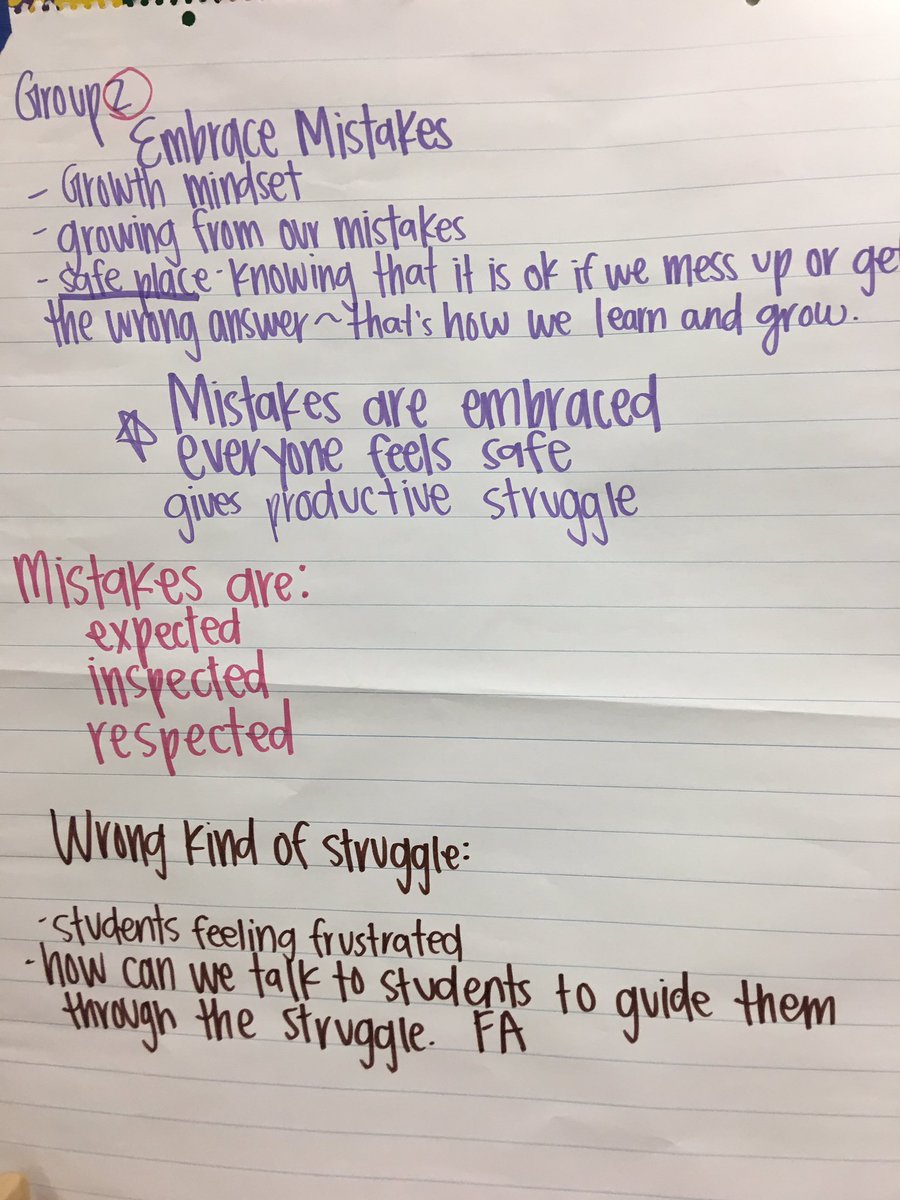 Group 2
Embrace Mistakes
- Growth mindset
- growing from our mistakes
- safe place - knowing that it is ok if we mess up or get
the wrong answer ~ that's how we learn and grow.
Mistakes are embraced
everyone feels safe
gives productive struggle
Mistakes are:
expected
inspected
respected
Wrong kind of struggle:
- students feeling frustrated
- how can we talk to students to guide them
through the struggle. FA